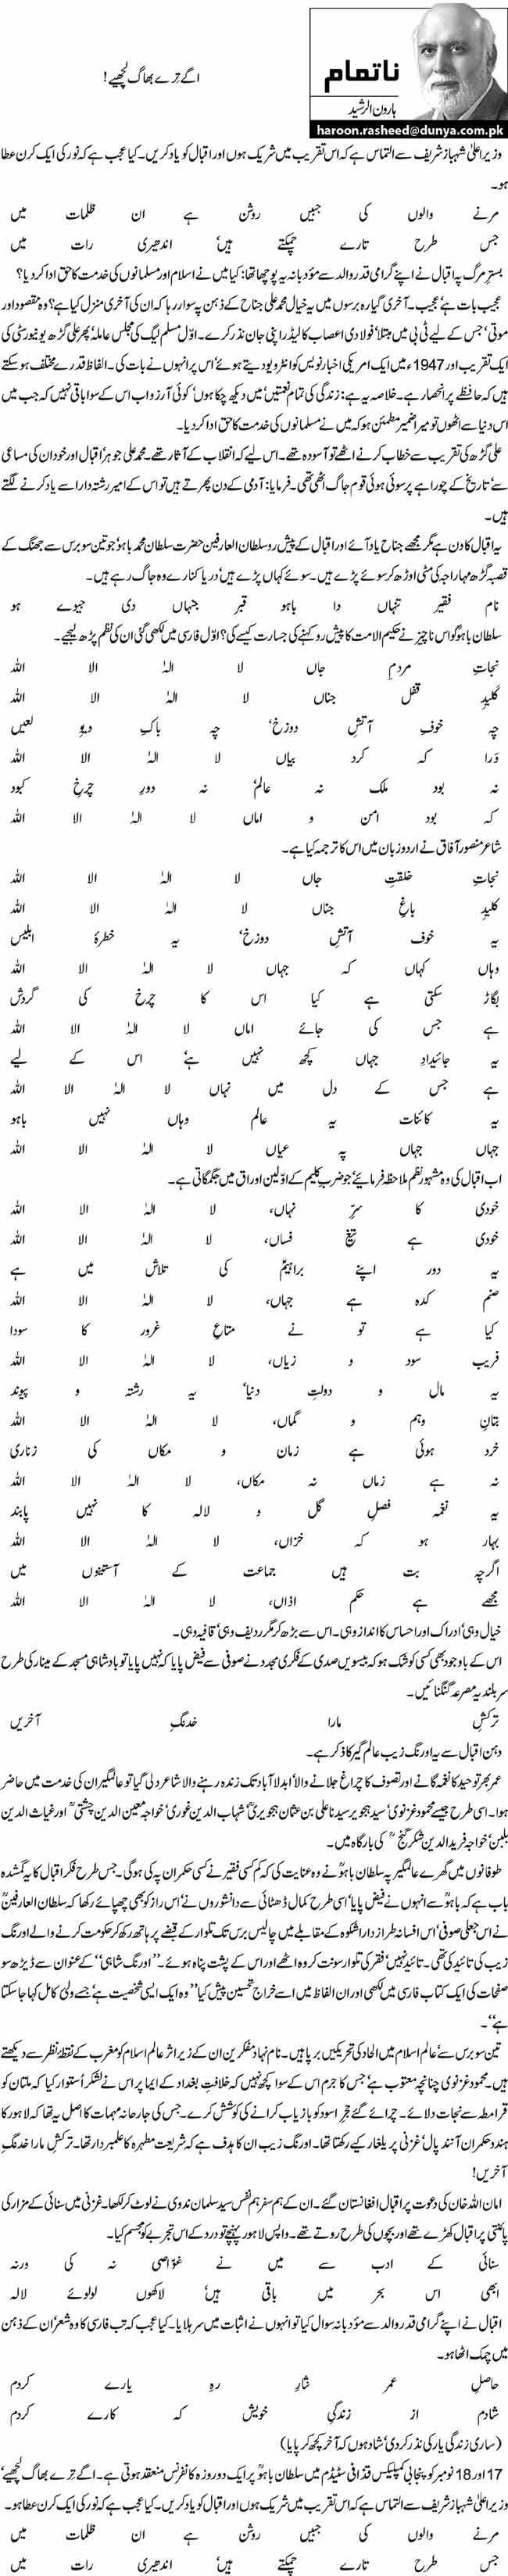 ناتمام
ہارون الرشید
haroon.rasheed@dunya.com.pk
اگے تِرے بھاگ لچھیے!
وزیراعلیٰ شہباز شریف سے التماس ہے کہ اس تقریب میں شریک ہوں اور اقبال کو یاد کریں۔ کیا عجب ہے کہ نور کی ایک کرن عطا
ہو۔
مرنے والوں کی جبیں روشن ہے ان ظلمات میں
جس طرح تارے چمکتے ہیں‘ اندھیری رات میں
بسترِ مرگ پہ اقبال نے اپنے گرامی قدر والد سے مؤدبانہ یہ پوچھا تھا: کیا میں نے اسلام اور مسلمانوں کی خدمت کا حق ادا کر دیا؟
عجیب بات ہے‘ عجیب۔ آخری گیارہ برسوں میں یہ خیال محمد علی جناح کے ذہن پہ سوار رہا کہ ان کی آخری منزل کیا ہے؟ وہ مقصود اور
موتی‘ جس کے لیے ٹی بی میں مبتلا‘ فولادی اعصاب کا لیڈر اپنی جان نذر کرے۔ اوّل مسلم لیگ کی مجلس عاملہ‘ پھر علی گڑھ یونیورسٹی کی
ایک تقریب اور 1947ء میں ایک امریکی اخبار نویس کو انٹرویو دیتے ہوئے‘ اس پر انہوں نے بات کی۔ الفاظ قدرے مختلف ہو سکتے
ہیں کہ حافظے پر انحصار ہے۔ خلاصہ یہ ہے: زندگی کی تمام نعمتیں‘ میں دیکھ چکا ہوں‘ کوئی آرزو اب اس کے سوا باقی نہیں کہ جب میں
اس دنیا سے اٹھوں تو میرا ضمیر مطمئن ہو کہ میں نے مسلمانوں کی خدمت کا حق ادا کر دیا۔
علی گڑھ کی تقریب سے خطاب کرنے اٹھے تو آسودہ تھے۔ اس لیے کہ انقلاب کے آثار تھے۔ محمد علی جوہر‘ اقبال اور خود ان کی مساعی
سے‘ تاریخ کے چوراہے پر سوئی ہوئی قوم جاگ اٹھی تھی۔ فرمایا: آدمی کے دن پھرتے ہیں تو اس کے امیر رشتہ دار اسے یاد کرنے لگتے
ہیں۔
یہ اقبال کا دن ہے مگر مجھے جناح یاد آئے اور اقبال کے پیش رو سلطان العارفین حضرت سلطان محمد باہوؒ جو تین سو برس سے جھنگ کے
قصبہ گڑھ مہاراجہ کی مٹی اوڑھ کر سوئے پڑے ہیں۔ سوئے کہاں پڑے ہیں‘ دریا کنارے وہ جاگ رہے ہیں۔
نام فقیر تنہاں دا باہو قبر جنہاں دی جیوے ہو
سلطان باہوؒ کو اس ناچیز نے حکیم الامت کا پیش رو کہنے کی جسارت کیسے کی؟ اوّل فارسی میں لکھی گئی ان کی نظم پڑھ لیجیے۔
نجاتِ مردمِ جاں لا الہٰ الا اللہ
کلیدِ قفل جناں لا الہٰ الا اللہ
چہ خوفِ آتشِ دوزخ‘ چہ باکِ دیوِ لعیں
وَرا کہ کرد بیاں لا الہٰ الا اللہ
نہ بود ملک نہ عالمؐ نہ دورِ چرخِ کبود
کہ بود امن و اماں لا الہٰ الا اللہ
شاعر منصور آفاق نے اردو زبان میں اس کا ترجمہ کیا ہے۔
نجاتِ خلقتِ جاں لا الہٰ الا اللہ
کلیدِ باغِ جناں لا الہٰ الا اللہ
یہ خوف آتشِ دوزخ‘ یہ خطرۂ ابلیس
وہاں کہاں کہ جہاں لا الہٰ الا اللہ
بگاڑ سکتی ہے کیا اس کا چرخ کی گردش
ہے جس کی جائے اماں لا الہٰ الا اللہ
یہ جائیدادِ جہاں کچھ نہیں ہے‘ اس کے لیے
ہے جس کے دل میں نہاں لا الہٰ الا اللہ
یہ کائنات یہ عالم وہاں نہیں باہو
جہاں جہاں پہ عیاں لا الہٰ الا اللہ
اب اقبال کی وہ مشہور نظم ملاحظہ فرمائیے‘ جو ضربِ کلیم کے اوّلین اوراق میں جگمگاتی ہے۔
خودی کا سرِّ نہاں، لا الہٰ الا اللہ
خودی ہے تیغ فساں، لا الہٰ الا اللہ
یہ دور اپنے براہیمؑ کی تلاش میں ہے
صنم کدہ ہے جہاں، لا الہٰ الا اللہ
کیا ہے تو نے متاعِ غرور کا سودا
فریب سود و زیاں، لا الہٰ الا اللہ
یہ مال و دولتِ دنیا‘ یہ رشتہ و پیوند
بتانِ وہم و گماں، لا الہٰ الا اللہ
خرد ہوئی ہے زمان و مکاں کی زناری
نہ ہے زماں نہ مکاں، لا الہٰ الا اللہ
یہ نغمہ فصلِ گل و لالہ کا نہیں پابند
بہار ہو کہ خزاں، لا الہٰ الا اللہ
اگرچہ بت ہیں جماعت کے آستینوں میں
مجھے ہے حکم اذاں، لا الہٰ الا اللہ
خیال وہی‘ ادراک اور احساس کا انداز وہی۔ اس سے بڑھ کر مگر ردیف وہی‘ قافیہ وہی۔
اس کے باوجود بھی کسی کو شک ہو کہ بیسویں صدی کے فکری مجدد نے صوفی سے فیض پایا کہ نہیں پایا تو بادشاہی مسجد کے مینار کی طرح
سربلند یہ مصرعہ گنگنائیں۔
ترکشِ مارا خدنگِ آخریں
دہنِ اقبال سے یہ اورنگ زیب عالم گیر کا ذکر ہے۔
عمر بھر توحید کا نغمہ گانے اور تصوف کا چراغ جلانے والا‘ ابدلآباد تک زندہ رہنے والا شاعر دلی گیا تو عالمگیر ان کی خدمت میں حاضر
ہوا۔ اسی طرح جیسے محمود غزنوی‘ سید ہجویر سیدنا علی بن عثمان ہجویریؒ‘ شہاب الدین غوری‘ خواجہ معین الدین چشتیؒ اور غیاث الدین
بلبن‘ خواجہ فرید الدین شکر گنجؒ کی بارگاہ میں۔
طوفانوں میں گھرے عالمگیر پہ سلطان باہوؒ نے وہ عنایت کی کہ کم کسی فقیر نے کسی حکمران پہ کی ہو گی۔ جس طرح فکرِ اقبال کا یہ گمشدہ
باب ہے کہ باہوؒ سے انہوں نے فیض پایا‘ اسی طرح کمال ڈھٹائی سے دانشوروں نے‘ اس راز کو بھی چھپائے رکھا کہ سلطان العارفینؒ
نے اس جعلی صوفی‘ اس افسانہ طراز دارا شکوہ کے مقابلے میں چالیس برس تک تلوار کے قبضے پر ہاتھ رکھ کر حکومت کرنے والے اورنگ
زیب کی تائید کی تھی۔ تائید نہیں‘ فقر کی تلوار سونت کر وہ اٹھے اور اس کے پشت پناہ ہوئے۔ ’’اورنگ شاہی‘‘ کے عنوان سے ڈیڑھ سو
صفحات کی ایک کتاب فارسی میں لکھی اور ان الفاظ میں اسے خراج تحسین پیش کیا ’’وہ ایک ایسی شخصیت ہے‘ جسے ولیٔ کامل کہا جا سکتا
ہے‘‘۔
تین سو برس سے‘ عالم اسلام میں الحاد کی تحریکیں برپا ہیں۔ نام نہاد مفکرین ان کے زیر اثر عالم اسلام کو مغرب کے نقطۂ نظر سے دیکھتے
ہیں۔ محمود غزنوی چنانچہ معتوب ہے‘ جس کا جرم اس کے سوا کچھ نہیں کہ خلافتِ بغداد کے ایما پر اس نے لشکر اُستوار کیا کہ ملتان کو
قرامطہ سے نجات دلائے۔ چرائے گئے حجرِ اسود کو بازیاب کرانے کی کوشش کرے۔ جس کی جارحانہ مہمات کا اصل یہ تھا کہ لاہور کا
ہندو حکمران آنند پال‘ غزنی پر یلغار کیے رکھتا تھا۔ اورنگ زیب ان کا ہدف ہے کہ شریعت مطہرہ کا علمبردار تھا۔ ترکشِ مارا خدنگِ
آخریں!
امان اللہ خان کی دعوت پر اقبال افغانستان گئے۔ ان کے ہم سفر ہم نفس سید سلمان ندوی نے لوٹ کر لکھا۔ غزنی میں سنائی کے مزار کی
پائنتی پر اقبال کھڑے تھے اور بچوں کی طرح روتے تھے۔ واپس لاہور پہنچے تو درد کے اس تجربے کو مجسم کیا۔
سنائی کے ادب سے میں نے غوّاصی نہ کی ورنہ
ابھی اس بحر میں باقی ہیں‘ لاکھوں لولوئے لالہ
اقبال نے اپنے گرامی قدر والد سے مؤدبانہ سوال کیا تو انہوں نے اثبات میں سر ہلایا۔ کیا عجب کہ تب فارسی کا وہ شعر‘ ان کے ذہن
میں چمک اٹھا ہو۔
حاصلِ عمر نثارِ رہِ یارے کردم
شادم از زندگیِٔ خویش کہ کارے کردم
(ساری زندگی یار کی نذر کر دی‘ شاد ہوں کہ آخر کچھ کر پایا)
17 اور 18 نومبر کو پنجابی کمپلیکس قذافی سٹیڈیم میں سلطان باہوؒ پر ایک دو روزہ کانفرنس منعقد ہوتی ہے۔ اگے ترے بھاگ لچھیے‘
وزیراعلیٰ شہباز شریف سے التماس ہے کہ اس تقریب میں شریک ہوں اور اقبال کو یاد کریں۔ کیا عجب ہے کہ نور کی ایک کرن عطا ہو۔
مرنے والوں کی جبیں روشن ہے ان ظلمات میں
جس طرح تارے چمکتے ہیں‘ اندھیری رات میں